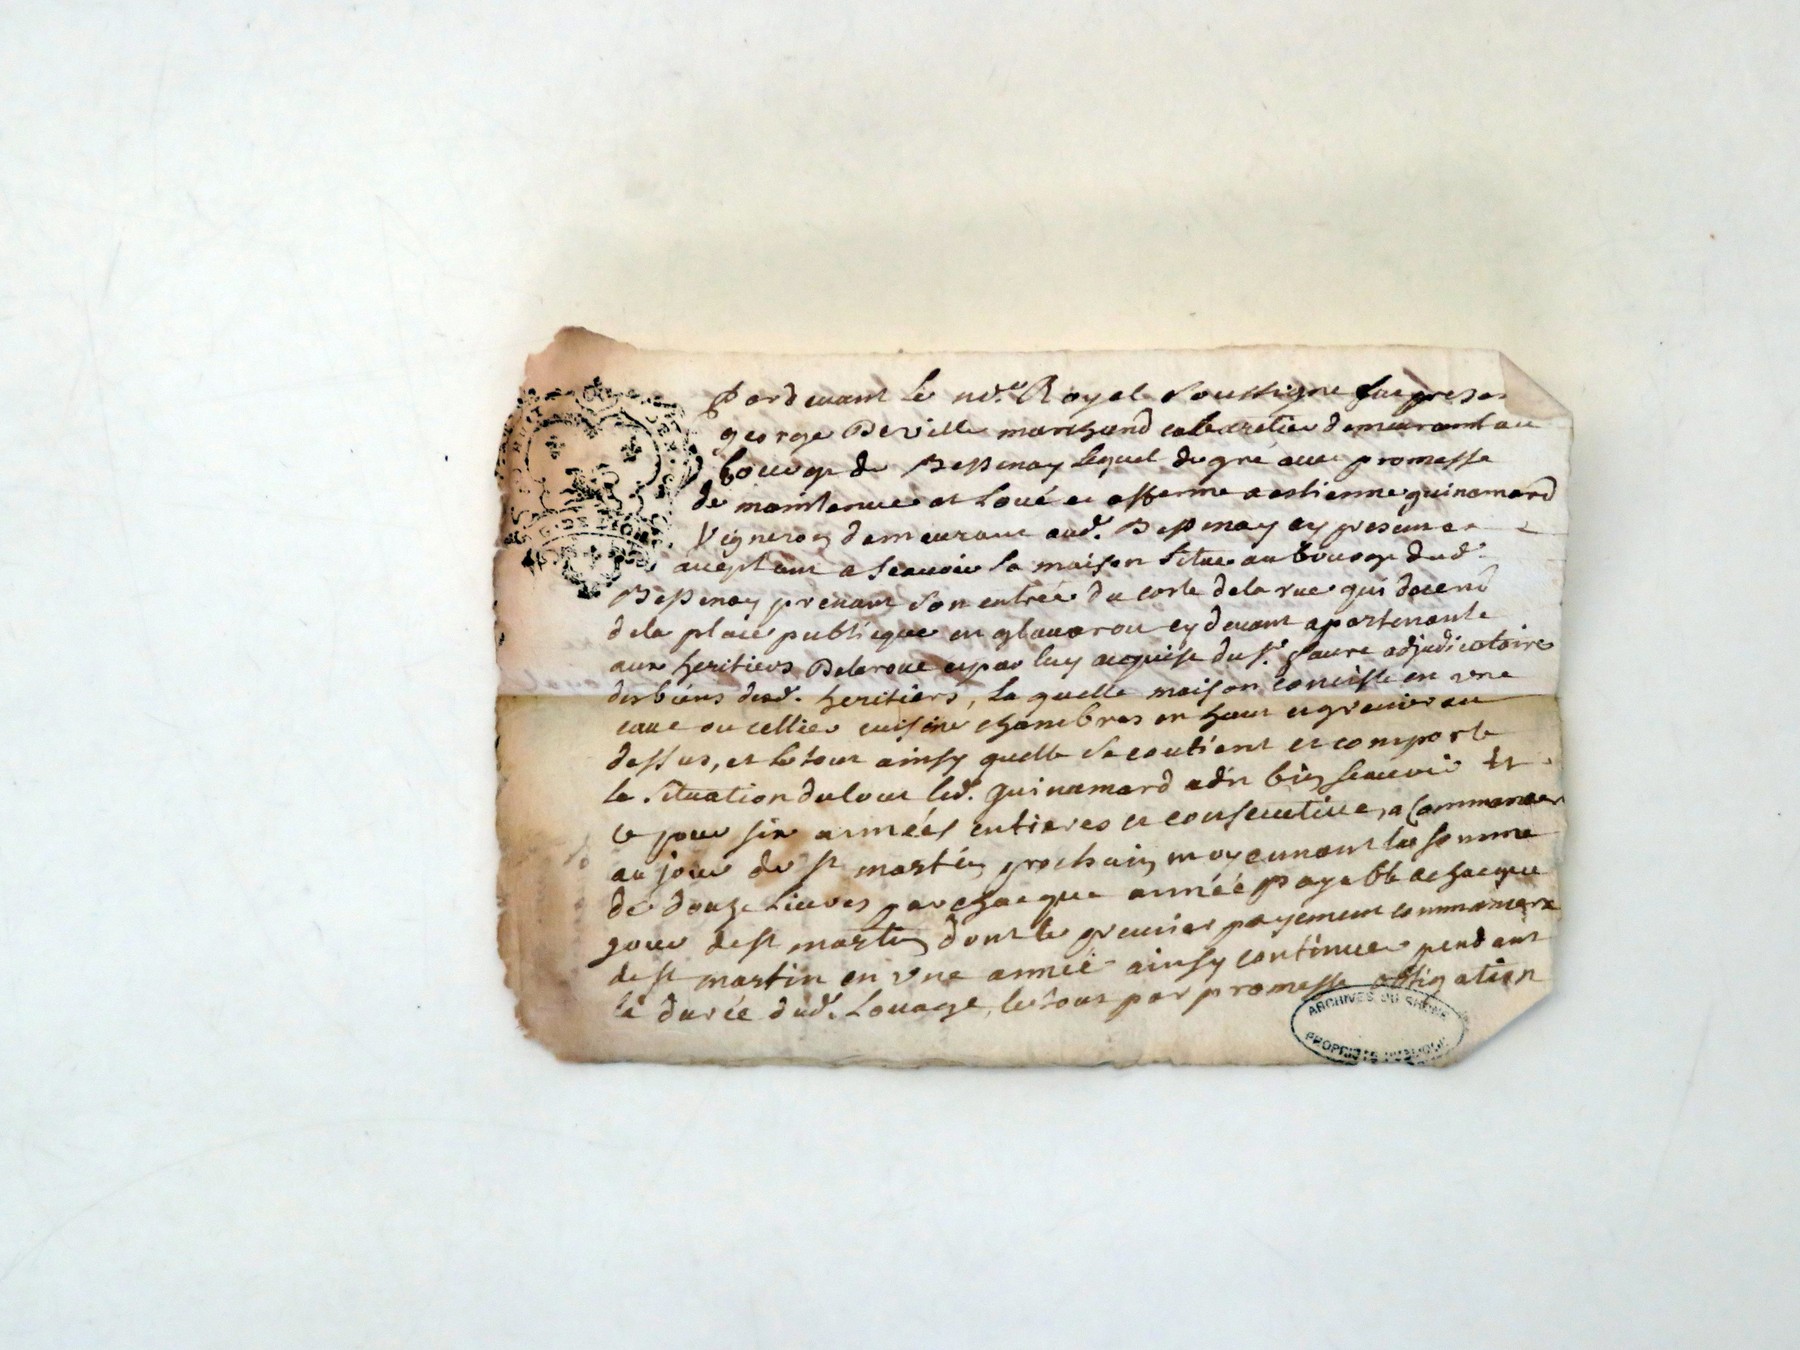 Pardevant le no.re Royal soussigné fut presen
george Deville marchand cabaretier demeurant au
bourg de Bessenay lequel de gré avec promesse
de maintenue at loué et afferme a estienne guinamard
Vigneron demeurant aud. Bessenay cy present et
aceptant a scauoir la maison situe au bourg dud.
Bessenay prenant son entrée du coste de la rue qui decend
de la place publicque en cy deuant apartenante
aux heritiers Delaroue et par luy acquise du sr. faure adjudicatoire
des biens desd. heritiers, la quelle maison consiste en vne
caue ou cellier cuisine chambres en haut et grenier au
dessus, et le tout ainsy quelle se contient et comporte
la situation du tout led. guinamard a dit bien scauoir Et
ce pour six années entieres et consecutiues, a Commancer
au jour de st martin prochain moyennant la somme
de douze Liures par chacque année payable a chacque
jour de st martin dont le premier payement commancera
de st martin en vne année ainsy continuer pendant
la durée dud. Louage, le tout par promesse obligation
ARCHIVES DU RHÔNE
PROPRIÉTÉ PUBLIQUE